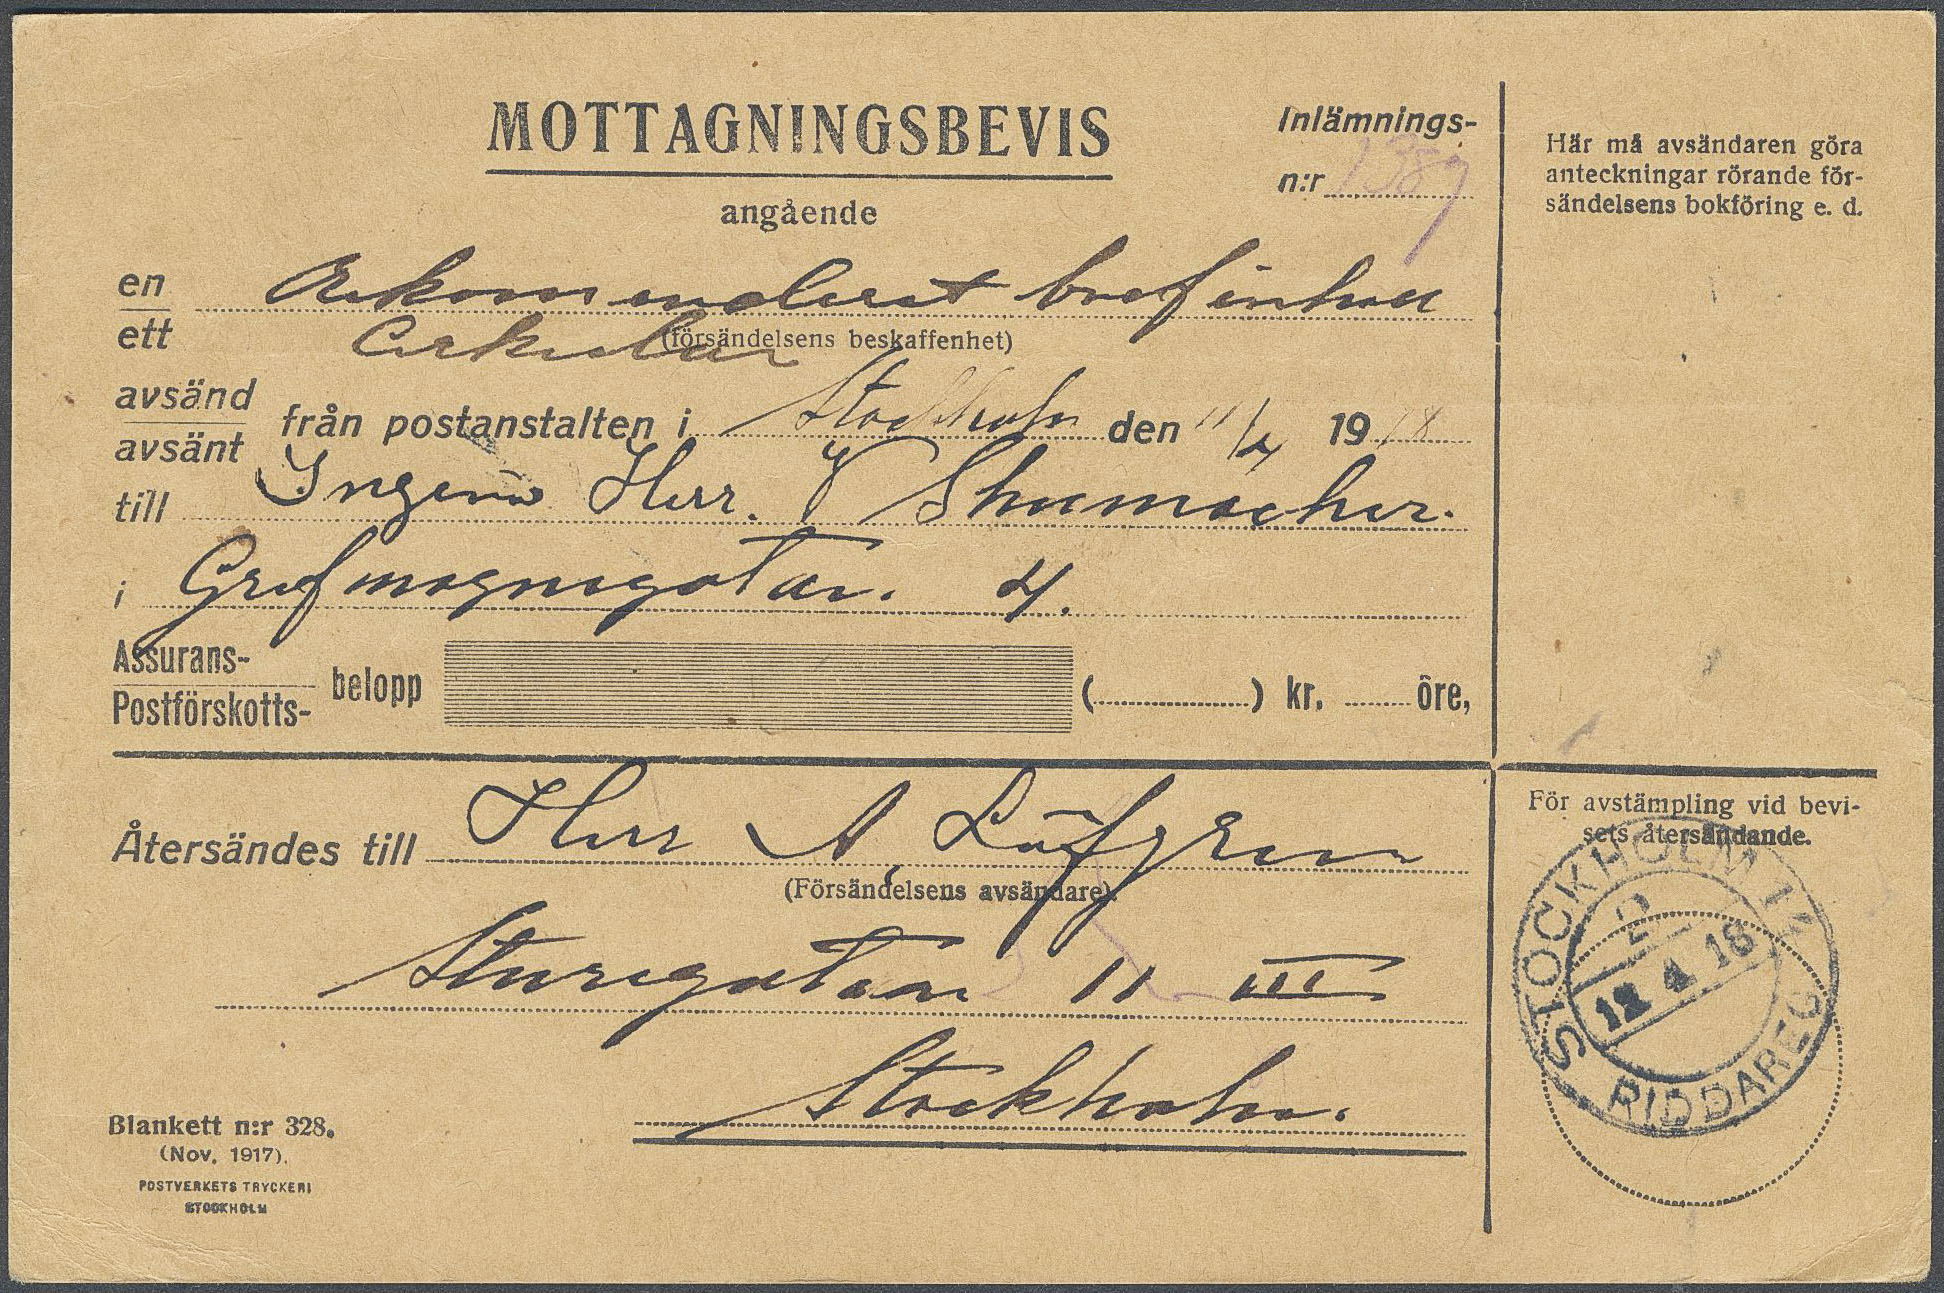 MOTTAGNINGSBEVIS
angående
Inlämnings-
n:r 1389
Här må avsändaren göra
anteckningar rörande för-
sändelsens bokföring e. d.
en
ett
Rekommenderat bref inneh
Cirkulär
(försändelsens beskaffenhet)
avsänd
avsänt
från postanstalten i Stockholm den 11/4 1918
till Ingeniör Herr. V Shumacher.
i Grefmagnigatan. 4.
Assurans-
Postförskotts-
belopp (..........) kr. ...... öre,
Återsändes till Herr A, Löfgren
(Försändelsens avsändare)
Sturegatan 11 III
Stockholm.
För avstämpling vid bevi-
sets återsändande.
STOCKHOLM
2
12 4 18
RIDDAREG
Blankett n:r 328.
(Nov. 1917).
POSTVERKETS TRYCKERI
STOCKHOLM